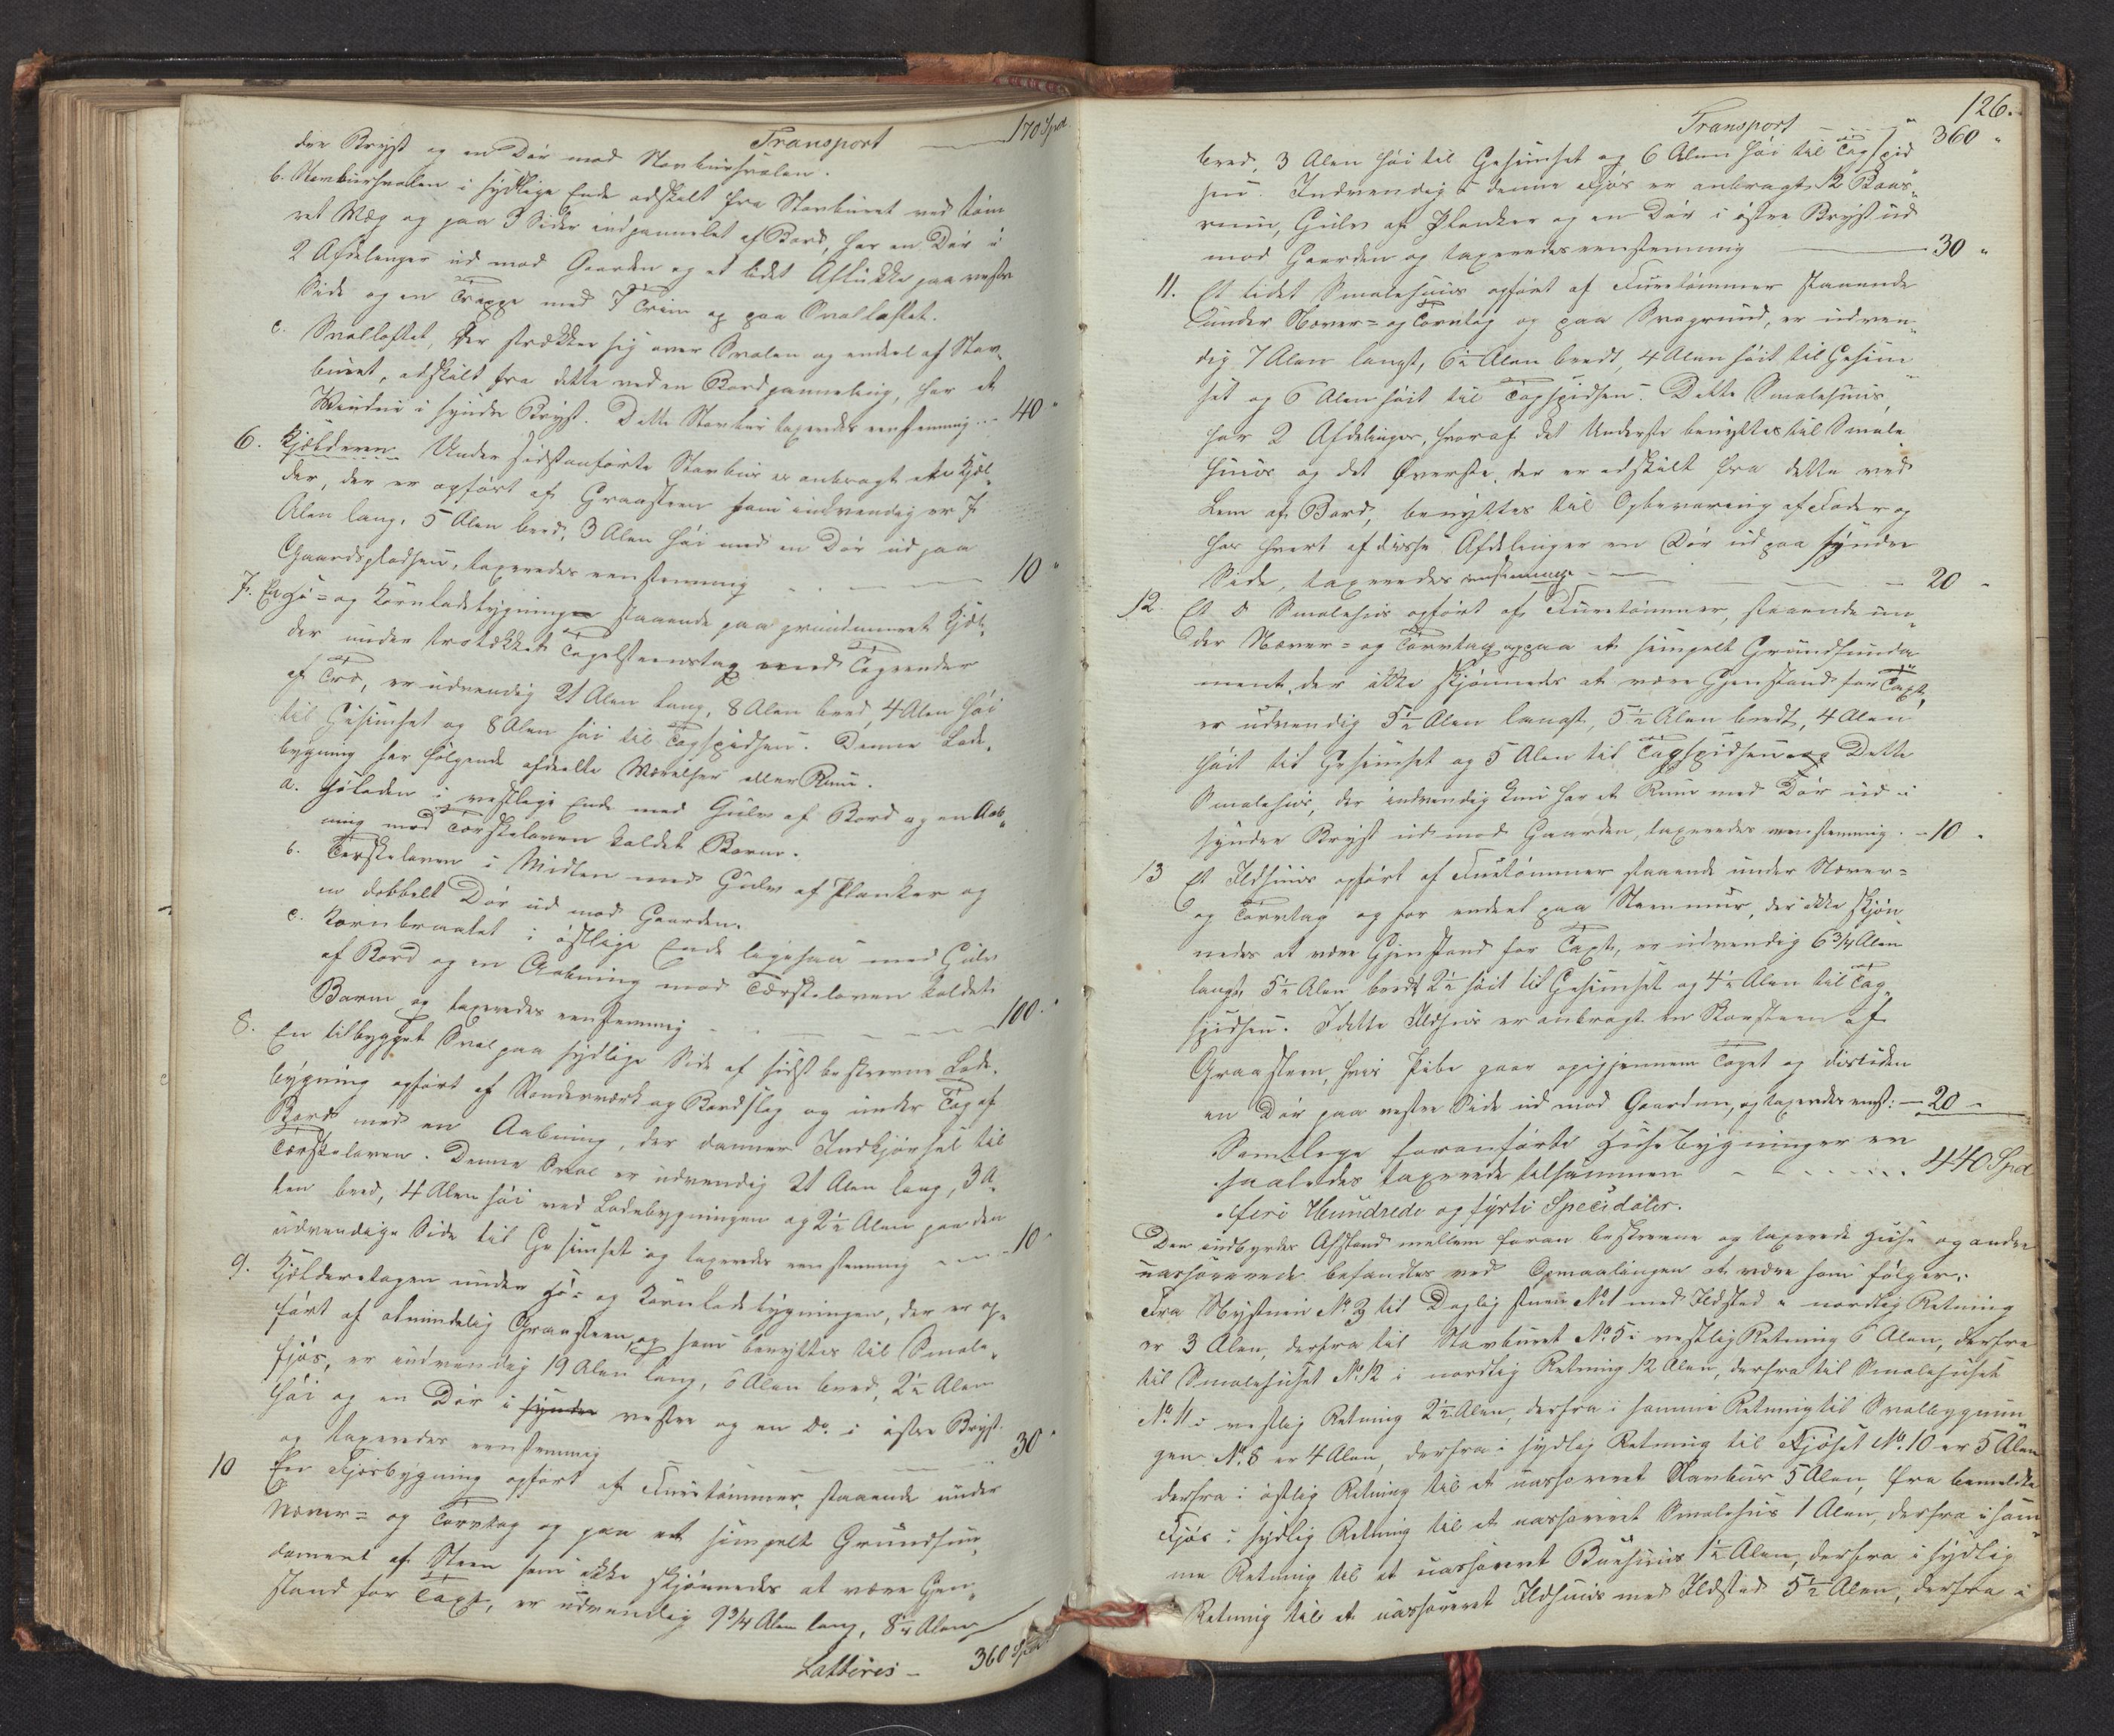 Transport — 170 Spd.
dre Bryst og en Dør mod Stavbuursvalen.
b. Stavbuursvalen i sydlige Ende adskilt fra Stavburet ved tøm
ret Væg og paa 3 Sider indpannelet af Bord, har en Dør i
2 Afdelinger ud mod Gaarden og et lidet Aflukke paa vestre
Side og en Trappe med 7 Trin op paa Svalloftet.
c. Svalloftet, der strækker sig over Svalen og endeel af Stav-
buret, adskilt fra dette ved en Bordpanneling, har et
Vindue i syndre Bryst. Dette Stavbur taxeredes eenstemmig - - 40 "
6. Kjælderen. Under sidstanførte Stavbur er anbragt en Kjæl-
der, der er opført af Graasteen som indvendig er 7
Alen lang, 5 Alen bred, 3 Alen høi med en Dør ud paa
Gaardspladsen, taxeredes eenstemmig - - - 10 "
7. En Hø- og Kornladebygning staaende paa grundmuret Kjæl-
der under trotækket Tagelsteenstag med Tagrender
af Træ, er udvendig 21 Alen lang, 8 Alen bred, 4 Alen høi
til Gesimset og 8 Alen høi til Tagspidsen. Denne Lade-
bygning har følgende afdeelte Værelser eller Rum.
a. Høladen i vestlige Ende med Gulv af Bord og en Aab-
ning mod Tærskeloven kaldet Barm.
b. Tærskeloven i Midten med Gulv af Planker og
en dobbelt Dør ud mod Gaarden.
c. Kornbraatet i østlige Ende ligesaa med Gulv
af Bord og en Aabning mod Tærskeloven kaldet
Barm og taxeredes eenstemmig - - - 100 "
8. En tilbygget Sval paa sydlige Side af sidst beskrevne Lade-
bygning opført af Stenderværk og Bordslag og under Tag af
Bord med en Aabning, der danner Indkjørsel til
Tærskeloven. Denne Sval er udvendig 21 Alen lang, 3 A-
len bred, 4 Alen høi ved Ladebygningen og 2½ Alen paa den
udvendige Side til Gesimset og taxeredes eenstemmig - - 10 "
9. Kjælderetagen under Hø- og Kornladebygningen, der er op-
ført af almindelig Graasteen, og som benyttes til Smale-
fjøs, er indvendig 19 Alen lang, 6 Alen bred, 2½ Alen
høi og en Dør i syndre vestre og en do. i østre Bryst
og taxeredes eenstemmig - - - 30 "
10 En Fjøsbygning opført af Furetømmer, staaende under
Næver- og Torvtag og paa et simpelt Grundfun-
dament af Steen som ikke skjønnedes at være Gjen-
stand for Taxt, er udvendig 9¾ Alen lang, 8½ Alen
Latteris - 360 Spd.
126.
Transport - - " 360 "
bred, 3 Alen høi til Gesimset og 6 Alen høi til Tagspid
sen. Indvendig i denne Fjøs er anbragt 12 Baas-
rum, Gulv af Planker og en Dør i østre Bryst ud
mod Gaarden og taxeredes eenstemmig — 30 "
11. Et lidet Smalehuus opført af Furetømmer staaende
under Næver- og Torvtag og paa Svagrund, er udven-
dig 7 Alen langt, 6½ Alen bredt, 4 Alen høit til Gesim-
set og 6 Alen høit til Tagspidsen. Dette Smalehuus,
har 2 Afdelinger, hvoraf det Underste benyttes til Smale
huus og det Øverste, der er adskilt fra dette ved
Lem af Bord, benyttes til Opbevaring af Foder og
har hvert af disse Afdelinger en Dør ud paa syndre
Side, taxeredes eenstemmig - — - 20 -
12. Et do Smalehus opført af Furetømmer, staaende un-
der Næver- og Torvtag og paa et simpelt Grundfunda
ment, der ikke skjønnedes at være Gjenstand for Taxt,
er udvendig 5½ Alen langt, 5½ Alen bredt, 4 Alen
høit til Gesimset og 5 Alen til Tagspidsen. Dette
Smalehus, der indvendig kun har et Rum med Dør ud i
syndre Bryst ud mod Gaarden, taxeredes eenstemmig. - 10 -
13 Et Ildhuus opført af Furetømmer staaende under Næver-
og Torvtag og for endeel paa Steenmuur, der ikke skjøn
nedes at være Gjenstand for Taxt, er udvendig 6¾ Alen
langt, 5½ Alen bredt 2½ høit til Gesimset og 4½ Alen til Tag-
spidsen. I dette Ildhus er anbragt en Skorsteen af
Graasteen, hvis Pibe gaar opigjennem Taget og desuden
en Dør paa vestre Side ud mod Gaarden, og taxeredes eenst: - 20 -
Samtlige foranførte Huusebygninger er
saaledes taxerede tilsammen - - - - 440 Spd
fire Hundrede og fyrti Specidaler.
Den indbyrdes Afstand mellem foran beskrevne og taxerede Huse og andre
uassurerede befandtes ved Opmaalingen at være som følger:
Fra Nystuen No 3 til Dagligstuen No 1 med Ildsted i nordlig Retning
er 3 Alen, derfra til Stavburet No. 5 i vestlig Retning 6 Alen, derfra
til Smalehuset No. 12 i nordlig Retning 12 Alen, derfra til Smalehuset
No. 11 i vestlig Retning 2½ Alen, derfra i samme Retning til Svalbygnin
gen No. 8 er 4 Alen, derfra i sydlig Retning til Fjøset No. 10 er 5 Alen
derfra i østlig Retning til et uassureret Stavbur 5 Alen, fra bemeldte
Fjøs i sydlig Retning til et uassureret Smalehus 1 Alen, derfra i sam-
me Retning til et uassureret Buehuus 1½ Alen, derfra i sydlig
Retning til et uassureret Ildhuus med Ildsted 5½ Alen, derfra i